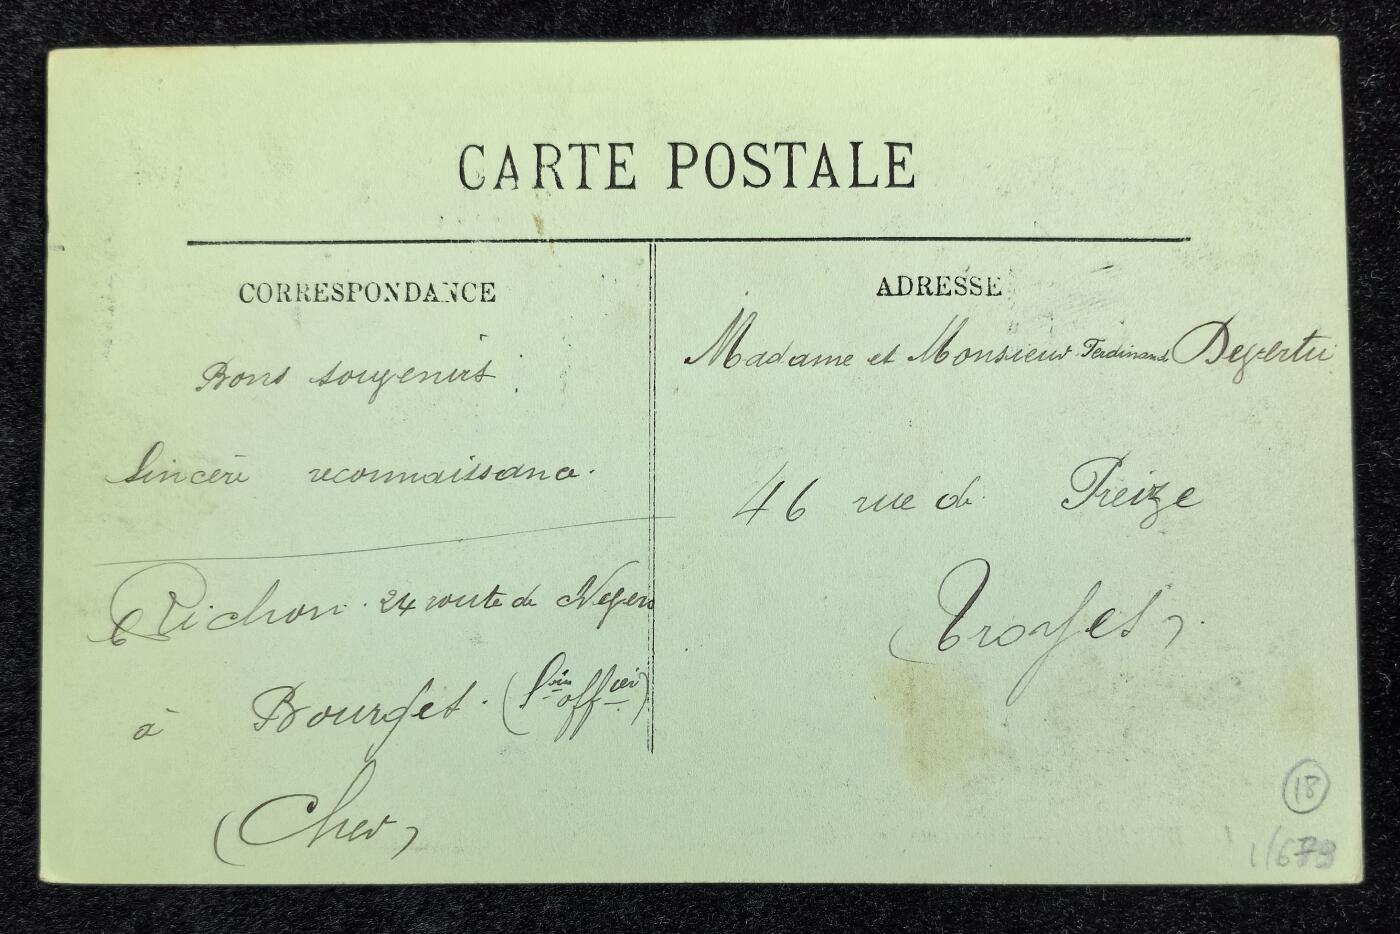 CARTE POSTALE
CORRESPONDANCE
Bons souvenirs
Sincère reconnaissance.
Richon. 24 route de
à Bourges. (S. off.)
(Cher)
ADRESSE
Madame et Monsieur Ferdinand
46 rue de Preize
Troyes.
18